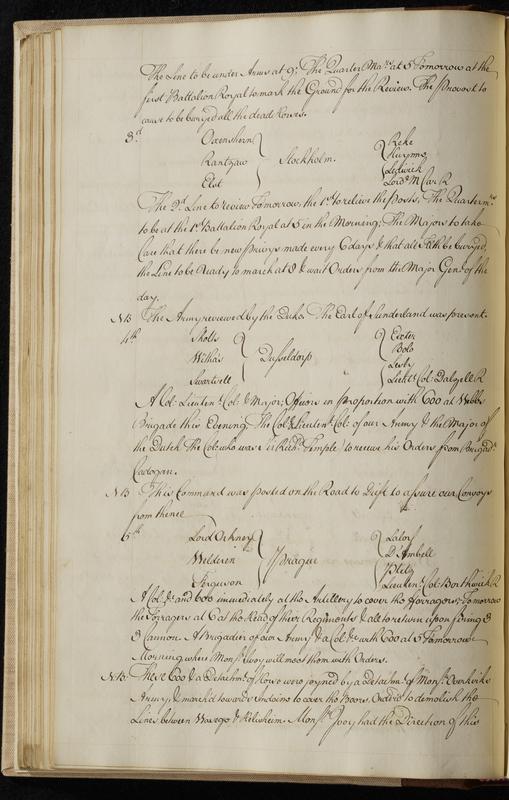 The Line to be under Arms at 9; The Quarter Mars. at 5 Tomorrow at the
first Battalion Royal to mark the Ground for the Review. The Provost to
cause to be buryed all the dead Horses.
3d. Oxenshern Reke
Rantzaw Stockholm. Murray
Elst
Lord M Car R
The 2d. Line to review Tomorrow, the 1st to relieve the Posts, The Quarterms.
to be at the 1st Battalion Royal at 5 in the Morning; The Majors to take
Care that there be new Privys made every 6 days & that all Filth be buryed,
the Line to be Ready to march at 8 & wait Orders from the Major Genl. of the
day.
NB The Army reviewed by the Duke. The Earl of Sunderland was present.
4th Sholts Exeter
Withas Dusseldorp Bolo
Swartsell Lesly
Lieut. Col: Dalyell R
A Col: Lieutent. Col: & Major; Officers in proportion with 600 at Webbs
Brigade this Evening, The Col: & Lieutent. Col: of our Army & the Major of
the Dutch The Col: who was Sr. Richd. Temple to receive his Orders from Brigadr.
Cadogan.
NB This Command was posted on the Road to Diest to assure our Convoys
from thence
5th Lord Orkney Lalo
Welderen Prague D'Ambell
Ferguson Plitz
Lieutent. Col: Borthwick R
A Col: &c and 600 immediately at the Artillery to cover the Forragers; Tomorrow
the Forragers at 6 at the Head of their Regiments & all to return upon firing 3
Cannon. A Brigadier of our Army & a Col: &c with 600 at 5 Tomorrow
Morning where Monsr. Ivoy will meet them with Orders.
NB These 600 & a Detachmt. of Horse were joyned by a Detachmt. of Monsr. Overkirks
Army, & march'd towards to cover the Boors Order'd to demolish the
Lines between Wasege & Helixheim. Monsr. Ivoy had the Direction of this